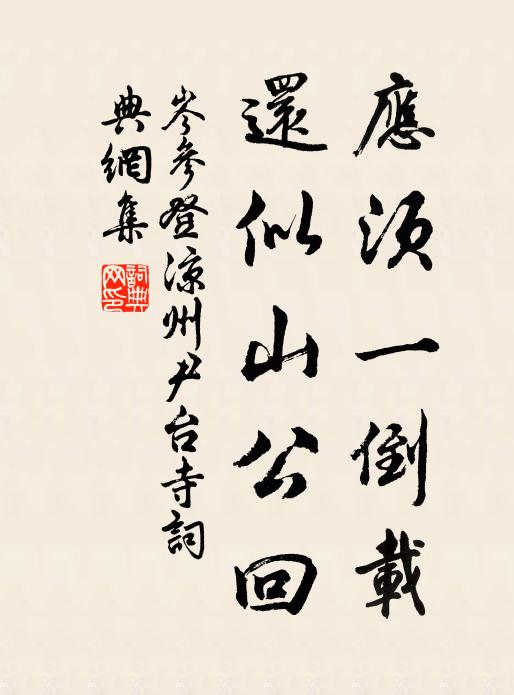 應須一倒載
還似山公回
岑參登涼州尹台寺詞
典網集
詞典网印